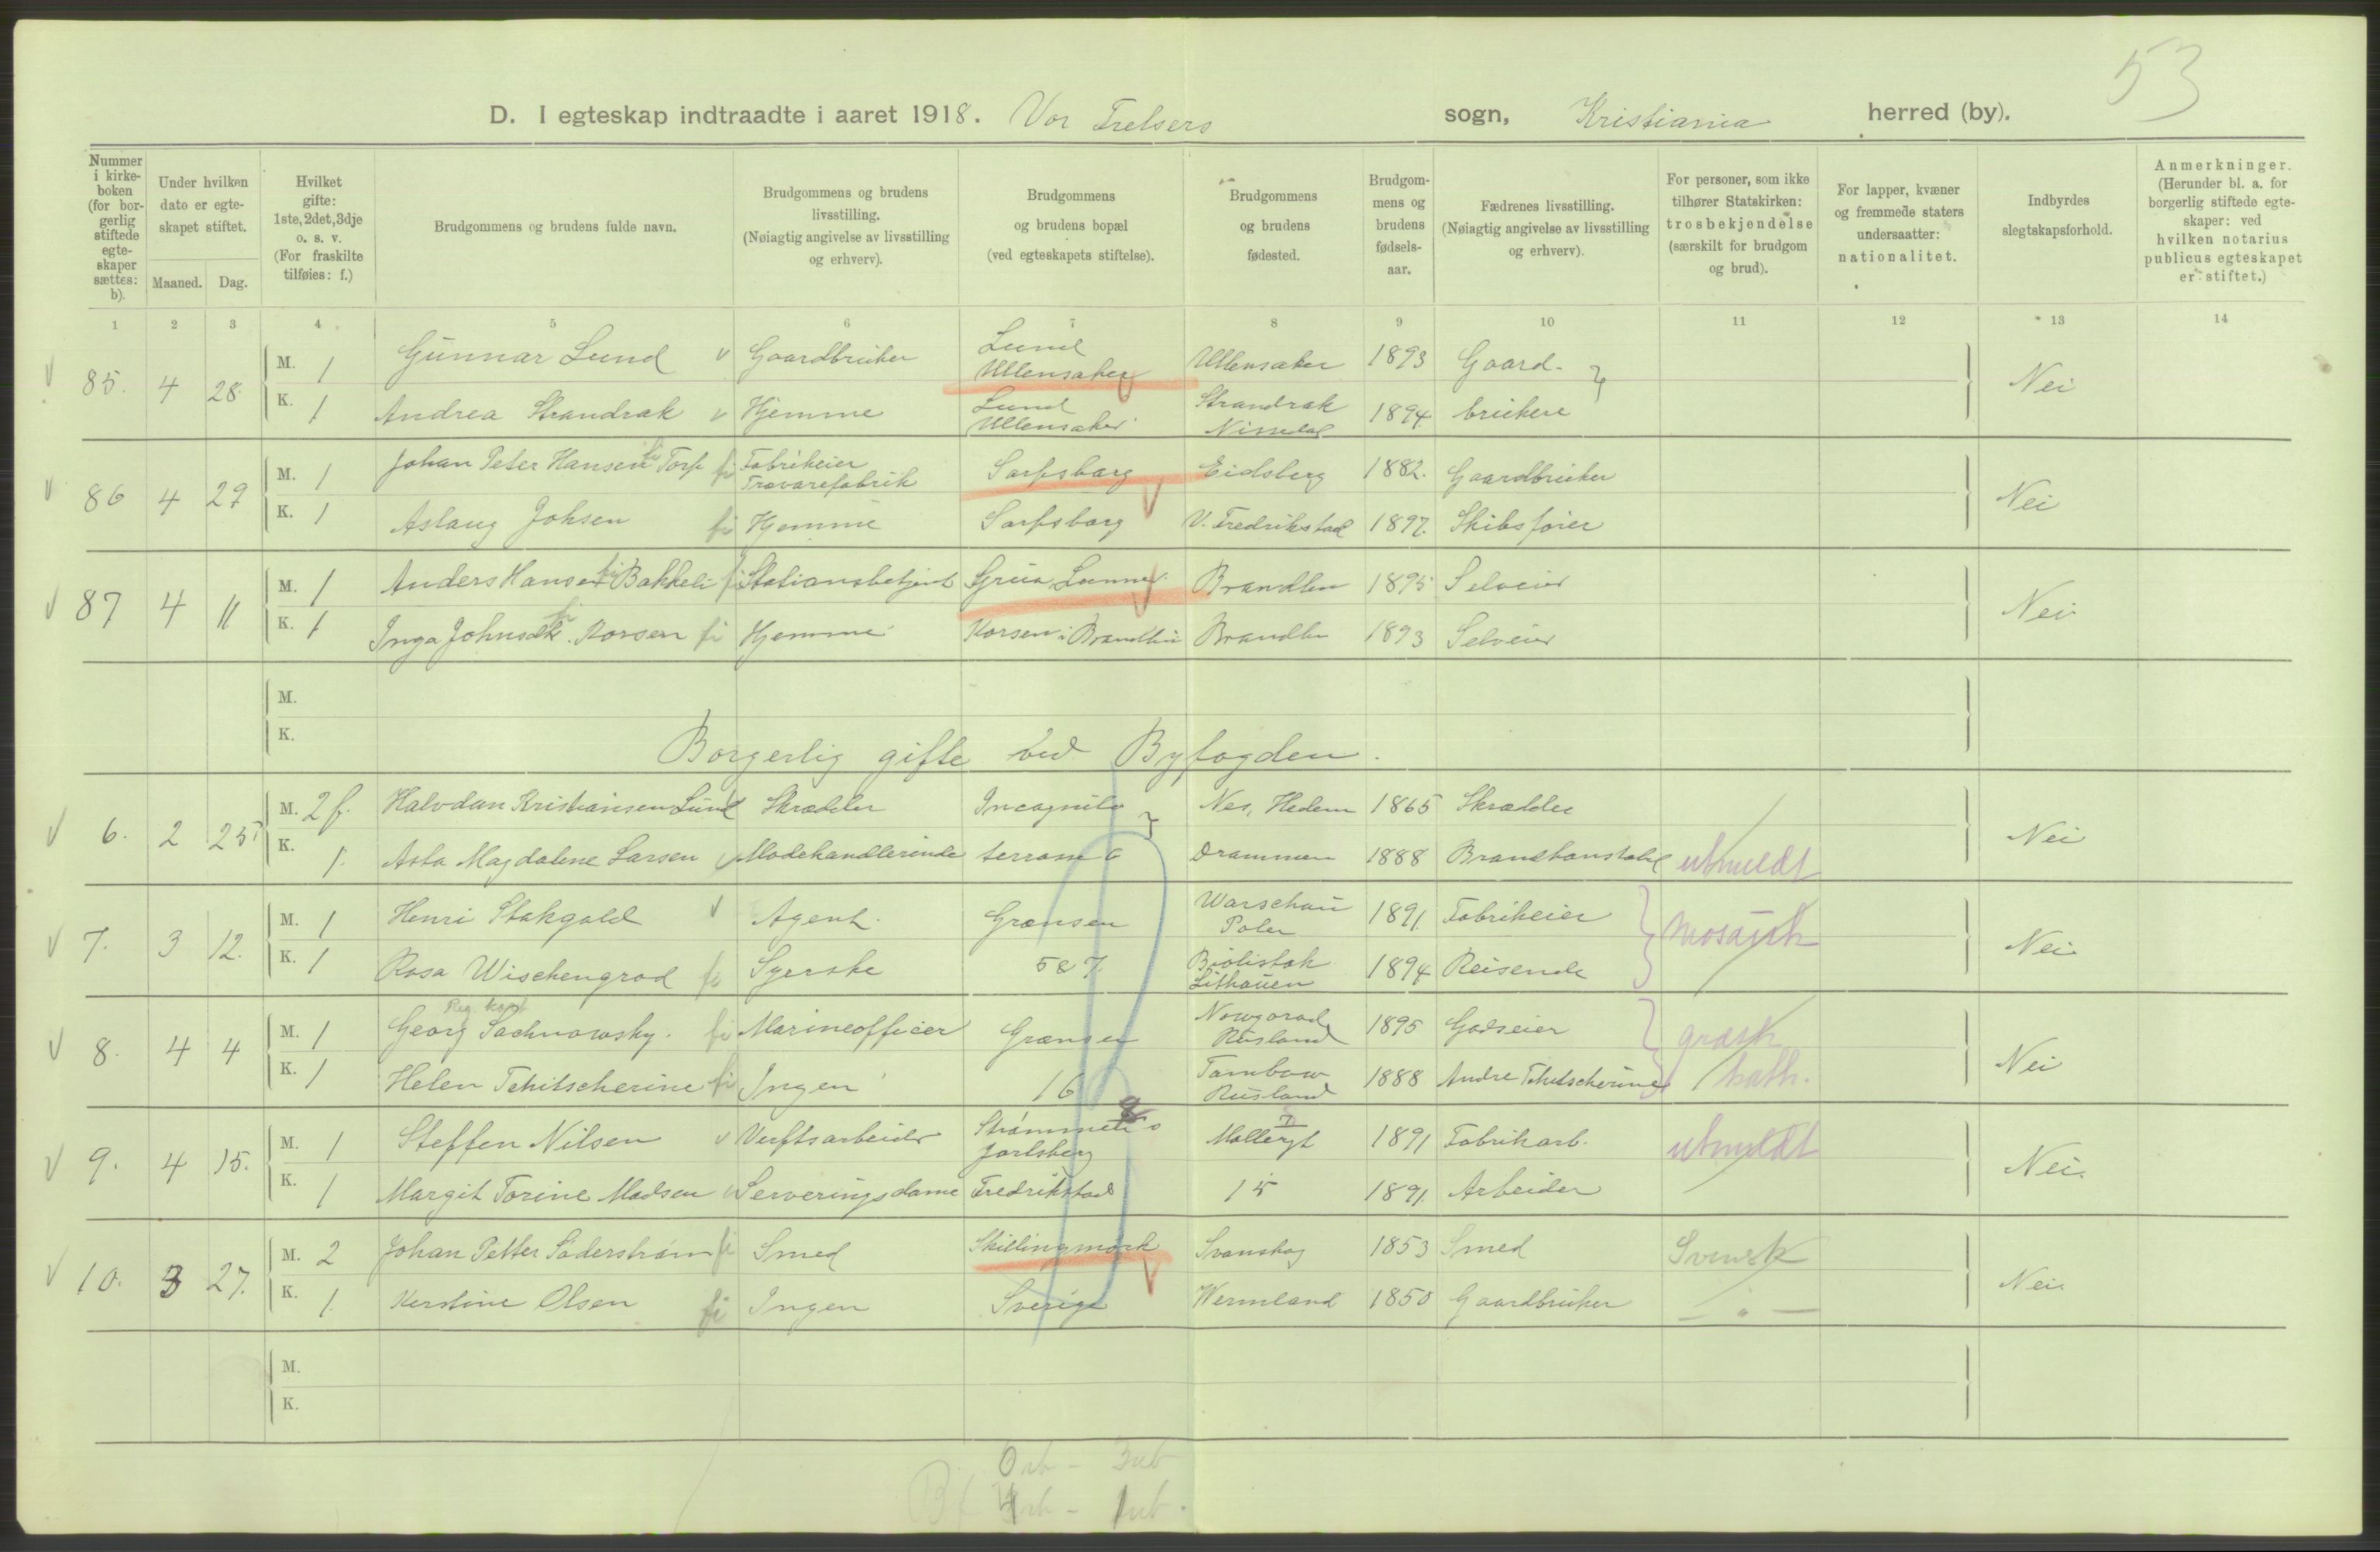 53
D. I egteskap indtraadte i aaret 1918. Vor Frelsers sogn, Kristiania herred (by).
Nummer i kirke-boken (for bor-gerlig stiftede egte-skaper sættes: b).
Under hvilken dato er egte-skapet stiftet.
Maaned. Dag.
Hvilket gifte: 1ste, 2det, 3dje o. s. v. (For fraskilte tilføies: f.)
Brudgommens og brudens fulde navn.
Brudgommens og brudens livsstilling. (Nøiagtig angivelse av livsstilling og erhverv).
Brudgommens og brudens bopæl (ved egteskapets stiftelse).
Brudgommens og brudens fødested.
Brudgom-mens og brudens fødsels-aar.
Fædrenes livsstilling. (Nøiagtig angivelse av livsstilling og erhverv).
For personer, som ikke tilhører Statskirken: trosbekjendelse (særskilt for brudgom og brud).
For lapper, kvæner og fremmede staters undersaatter: nationalitet.
Indbyrdes slegtskapsforhold.
Anmerkninger. (Herunder bl. a. for borgerlig stiftede egte-skaper: ved hvilken notarius publicus egteskapet er stiftet.)
1 2 3 4 5 6 7 8 9 10 11 12 13 14
85. 4 28. M. 1 Gunnar Lund Gaardbruker Lund Ullensaker Ullensaker 1893 Gaard- Nei
K. 1 Andrea Strandrak Hjemme Lund Ullensaker Strandrak Nissedal 1894 brukere
86 4 29 M. 1 Johan Peter Hansen Torp Fabrikeier Trævarefabrik Sarpsborg Eidsberg 1882. Gaardbruker Nei
K. 1 Aslaug Johsen Hjemme Sarpsborg V. Fredrikstad 1897. Skibsfører
87 4 11 M. 1 Anders Hansen Bakkeli Stationsbetjent Grua, Lunner Brandbu 1895 Selveier Nei
K. 1 Inga Johnsdt. Korsen Hjemme Korsen i Brandbu Brandbu 1893 Selveier
M.
K.
Borgerlig gifte ved Byfogden.
6. 2 25 M. 2 f. Halvdan Kristiansen Lund Skrædder Incognito Nes, Hedem 1865 Skrædder Nei
K. 1. Asta Magdalene Larsen Modehandlerinde terrasse 6 Drammen 1888 Brandkonstabel utmeldt
7. 3 12. M. 1 Henri Stakgold Agent. Grænsen Warschau Polen 1891 Fabrikeier mosaisk Nei
K. 1 Rosa Wischengrod Syerske 5 & 7 Biolistok Lithauen 1894 Reisende
Reg. kapt
8. 4 4 M. 1 Georg Sachnowsky. Marineofficer Grænsen Nowgorod Rusland 1895 Godseier græsk Nei
K. 1 Helen Tchitscherine Ingen 16 Tambow Rusland 1888 Andre Tchitscherine kath.
9. 4 15. M. 1 Steffen Nilsen Verftsarbeider Jarlsberg Møllergt 1891 Fabrikarb. utmeldt Nei.
K. 1 Margit Torine Madsen Serveringsdame Fredrikstad 15 1891. Arbeider
10. 3 27. M. 2 Johan Petter Søderstrøm Smed Skillingmark Svanskog 1853 Smed Svensk Nei.
K. 1. Kerstine Olsen Ingen Sverige Wermland 1850 Gaardbruker — " —
M.
K.